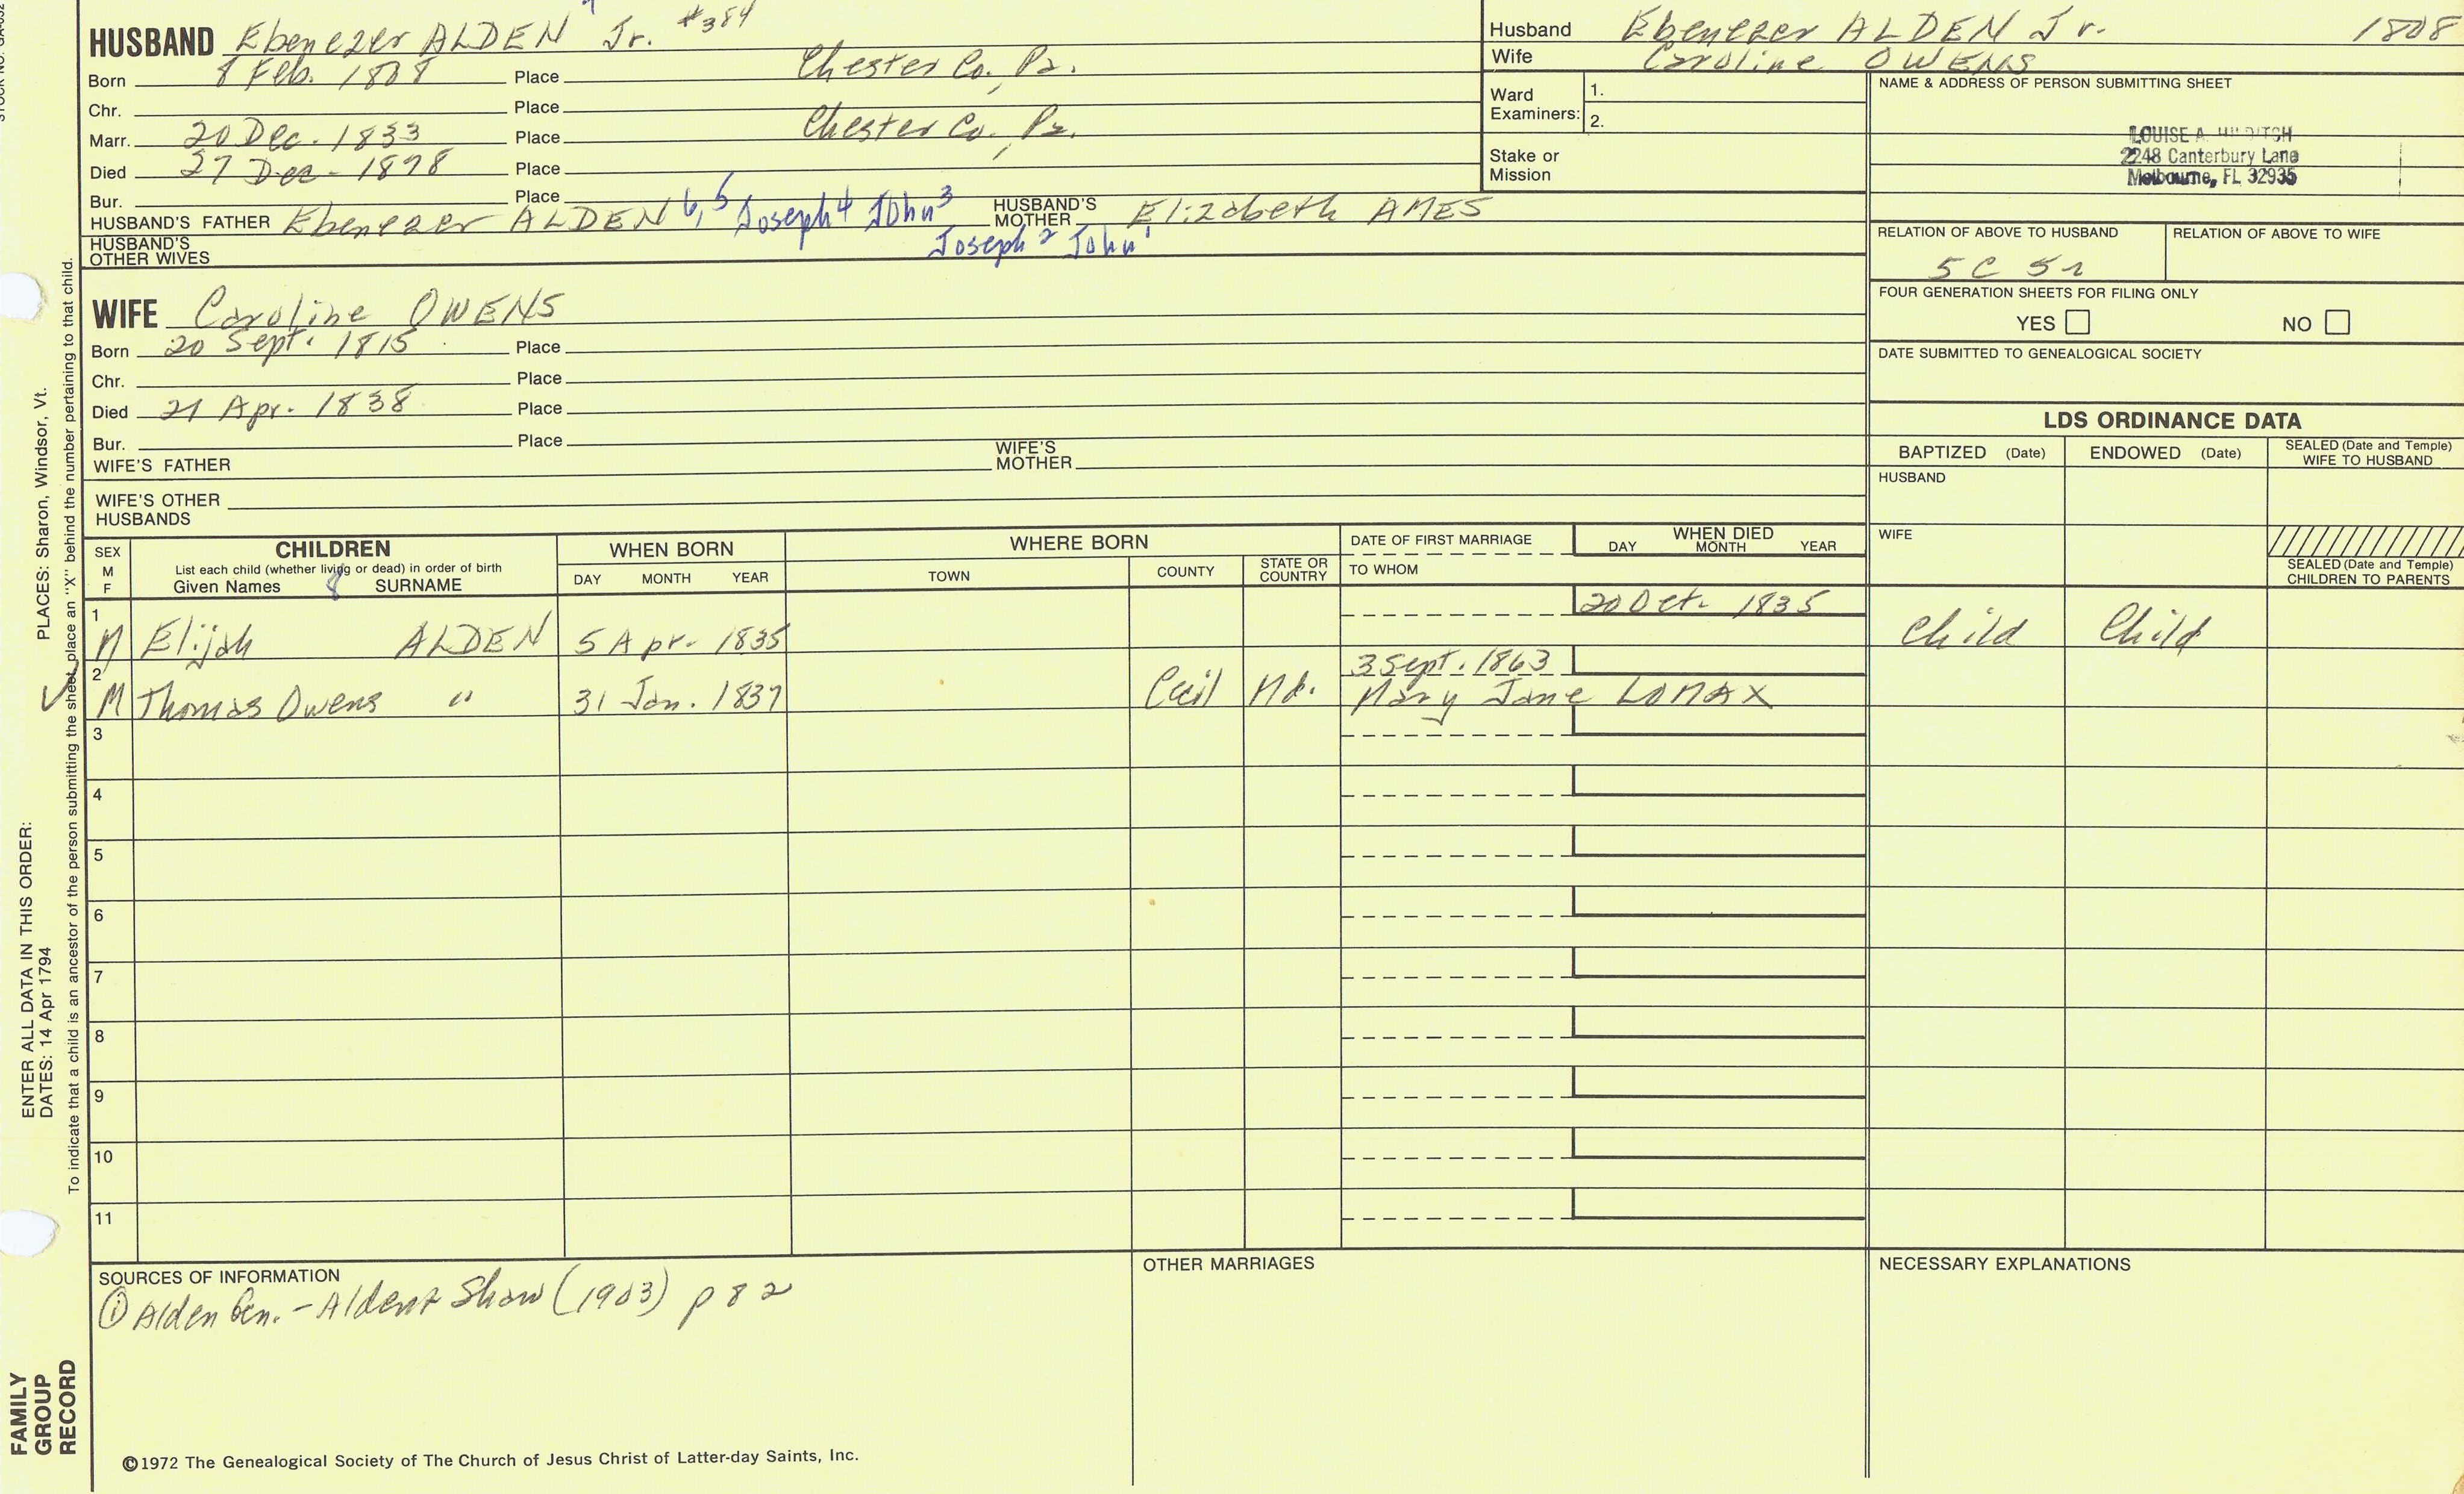 HUSBAND Ebenezer ALDEN Jr. #384
Born 8 Feb. 1808 Place Chester Co., Pa.
Chr. Place
Marr. 20 Dec. 1833 Place Chester Co., Pa.
Died 27 Dec. 1878 Place
Bur. Place
HUSBAND'S FATHER Ebenezer ALDEN 6, 5 Joseph 4 John 3 HUSBAND'S MOTHER Elizabeth AMES
Joseph 2 John 1
HUSBAND'S OTHER WIVES
WIFE Caroline OWENS
Born 20 Sept. 1815 Place
Chr. Place
Died 21 Apr. 1838 Place
Bur. Place
WIFE'S FATHER WIFE'S MOTHER
WIFE'S OTHER HUSBANDS
Husband Ebenezer ALDEN Jr. 1808
Wife Caroline OWENS
Ward Examiners: 1.
2.
Stake or Mission
NAME & ADDRESS OF PERSON SUBMITTING SHEET
LOUISE A.
2248 Canterbury Lane
Melbourne, FL 32935
RELATION OF ABOVE TO HUSBAND RELATION OF ABOVE TO WIFE
5C 5r
FOUR GENERATION SHEETS FOR FILING ONLY
YES NO
DATE SUBMITTED TO GENEALOGICAL SOCIETY
LDS ORDINANCE DATA
BAPTIZED (Date) ENDOWED (Date) SEALED (Date and Temple) WIFE TO HUSBAND
HUSBAND
WIFE
SEALED (Date and Temple) CHILDREN TO PARENTS
SEX M F
CHILDREN
List each child (whether living or dead) in order of birth
Given Names 8 SURNAME
WHEN BORN
DAY MONTH YEAR
WHERE BORN
TOWN COUNTY STATE OR COUNTRY
DATE OF FIRST MARRIAGE
TO WHOM
WHEN DIED
DAY MONTH YEAR
1 M Elijah ALDEN 5 Apr. 1835 20 Oct. 1835 Child Child
2 M Thomas Owens " 31 Jan. 1837 Cecil Md. 3 Sept. 1863
Mary Jane LOMAX
3
4
5
6
7
8
9
10
11
SOURCES OF INFORMATION
① Alden Gen. - Alden & Shaw (1903) p 82
OTHER MARRIAGES
NECESSARY EXPLANATIONS
©1972 The Genealogical Society of The Church of Jesus Christ of Latter-day Saints, Inc.
FAMILY GROUP RECORD
ENTER ALL DATA IN THIS ORDER:
DATES: 14 Apr 1794
PLACES: Sharon, Windsor, Vt.
To indicate that a child is an ancestor of the person submitting the sheet, place an "X" behind the number pertaining to that child.